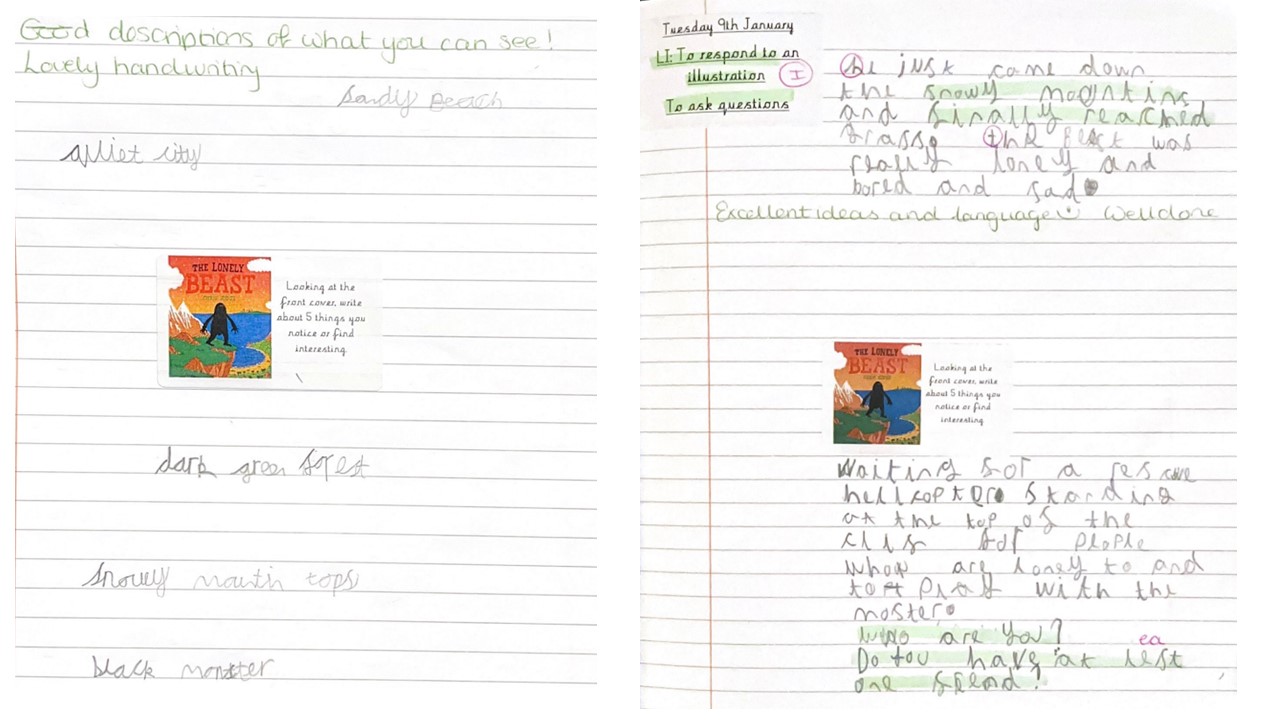 Good descriptions of what you can see!
Lovely handwriting
Sandy Beach
quiet city
THE LONELY
BEAST
Looking at the
front cover, write
about 5 things you
notice or find
interesting.
dark green forest
snowey mountin tops
black monster
Tuesday 9th January
LI: To respond to an
illustration I
To ask questions
he just came down
the snowy mountins
and finally reached
grass. the Best was
really lonely and
bored and sad
Excellent ideas and language Well done
THE LONELY
BEAST
Looking at the
front cover, write
about 5 things you
notice or find
interesting.
Waiting for a rescue
helicopter. Standing
at the top of the
clif for people
who are loney to and
to play with the
moster.
who are you?
ea
Do you have at lest
one friend?